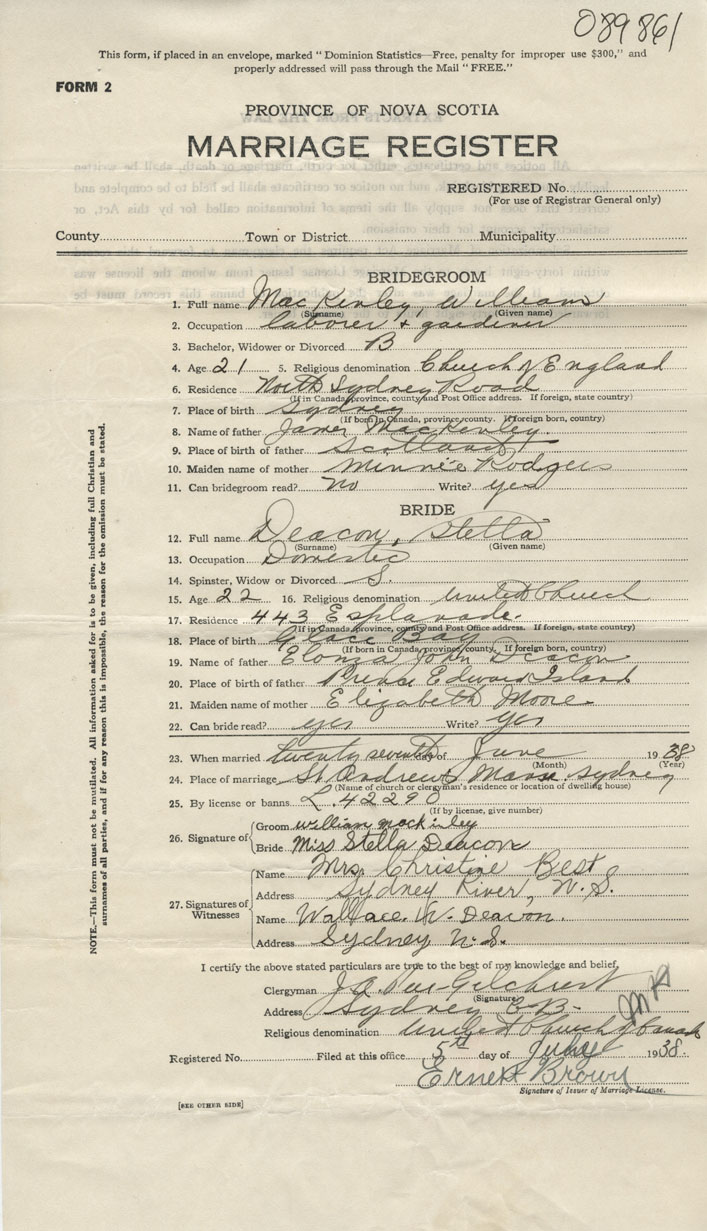 089861
This form, if placed in an envelope, marked "Dominion Statistics—Free, penalty for improper use $300," and
properly addressed will pass through the Mail "FREE."
FORM 2
PROVINCE OF NOVA SCOTIA
MARRIAGE REGISTER
REGISTERED No.
(For use of Registrar General only)
County Town or District Municipality
BRIDEGROOM
1. Full name MacKinley, William
(Surname) (Given name)
2. Occupation laborer + gardiner
3. Bachelor, Widower or Divorced B
4. Age 21 5. Religious denomination Church of England
6. Residence North Sydney Road
(If in Canada, province, county and Post Office address. If foreign, state country)
7. Place of birth Sydney
(If born in Canada, province, county. If foreign born, country)
8. Name of father James MacKinley
9. Place of birth of father Scotland
10. Maiden name of mother Minnie Rodgers
11. Can bridegroom read? no Write? yes
BRIDE
12. Full name Deacon, Stella
(Surname) (Given name)
13. Occupation Domestic
14. Spinster, Widow or Divorced S.
15. Age 22 16. Religious denomination United Church
17. Residence 443 Esplanade.
(If in Canada, province, county and Post Office address. If foreign, state country)
18. Place of birth Glace Bay
(If born in Canada, province, county. If foreign born, country)
19. Name of father John Deacon
20. Place of birth of father Prince Edward Island
21. Maiden name of mother Elizabeth Moore
22. Can bride read? yes Write? yes
23. When married twenty seventh day of June 1938
(Month) (Year)
24. Place of marriage St Andrew's Manse. Sydney
(Name of church or clergyman's residence or location of dwelling house)
25. By license or banns L. 42290
(If by license, give number)
26. Signature of
Groom william mackinley
Bride Miss Stella Deacon
27. Signatures of Witnesses
Name Mrs. Christine Best
Address Sydney River, N.S.
Name Wallace. W. Deacon.
Address Sydney N.S.
I certify the above stated particulars are true to the best of my knowledge and belief,
Clergyman Gilchrist
(Signature)
Address Sydney C.B.
Religious denomination United Church of Canada
Registered No. Filed at this office 5th day of July 1938.
Ernest Brown
Signature of Issuer of Marriage License.
[SEE OTHER SIDE]
NOTE.—This form must not be mutilated. All information asked for is to be given, including full Christian and
surnames of all parties, and if for any reason this is impossible, the reason for the omission must be stated.